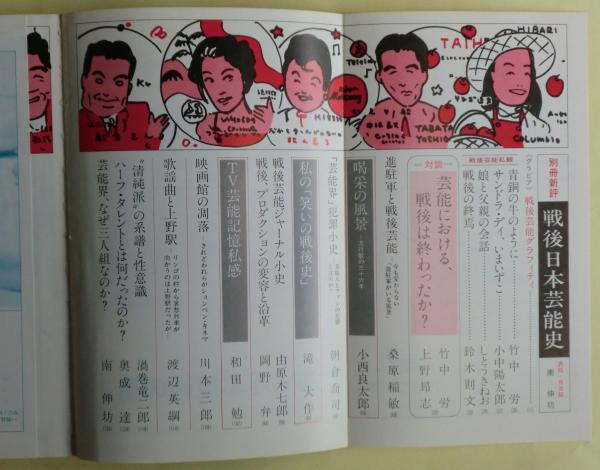 HIBARI
TAIHEI
TABATA
YOSHIO
COLUMBIA
別冊新評
戦後日本芸能史
表紙・目次絵 南 伸坊
〈グラビア〉戦後芸能グラフィティ
戦後芸能私観
青銅の牛のように 竹中 労
サンドラ・ディ、いまいずこ 小中陽太郎
娘と父親の会話 しとうきねお
戦後の終焉 鈴木則文
対談
芸能における、戦後は終わったか?
竹中 労
上野昂志
進駐軍と戦後芸能 桑原稲敏
喝采の風景 小西良太郎
「芸能界」犯罪小史 朝倉喬司
私の「笑いの戦後史」 滝 大作
戦後芸能ジャーナル小史 由原木七郎
戦後、プロダクションの変容と沿革 岡野 弁
TV芸能記憶私感 和田 勉
映画館の凋落 されどわれらがションベン・キネマ 川本三郎
歌謡曲と上野駅 リンゴの村から哀愁列車が出かうのは上野駅だったが… 渡辺英綱
“清純派”の系譜と性意識 渦巻竜二郎
ハーフ・タレントとは何だったのか? 奥成 達
芸能界、なぜ三人組なのか? 南 伸坊